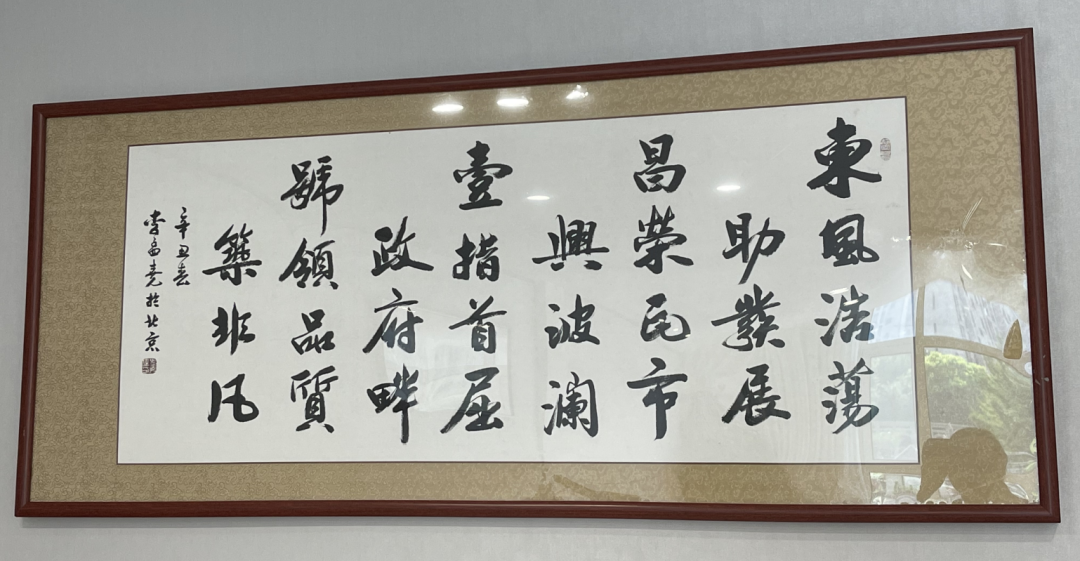 東風浩蕩
助發展
昌榮民市
興波瀾
壹指首屈
政府畔
號領品質
築非凡
辛丑春
李富堯於北京